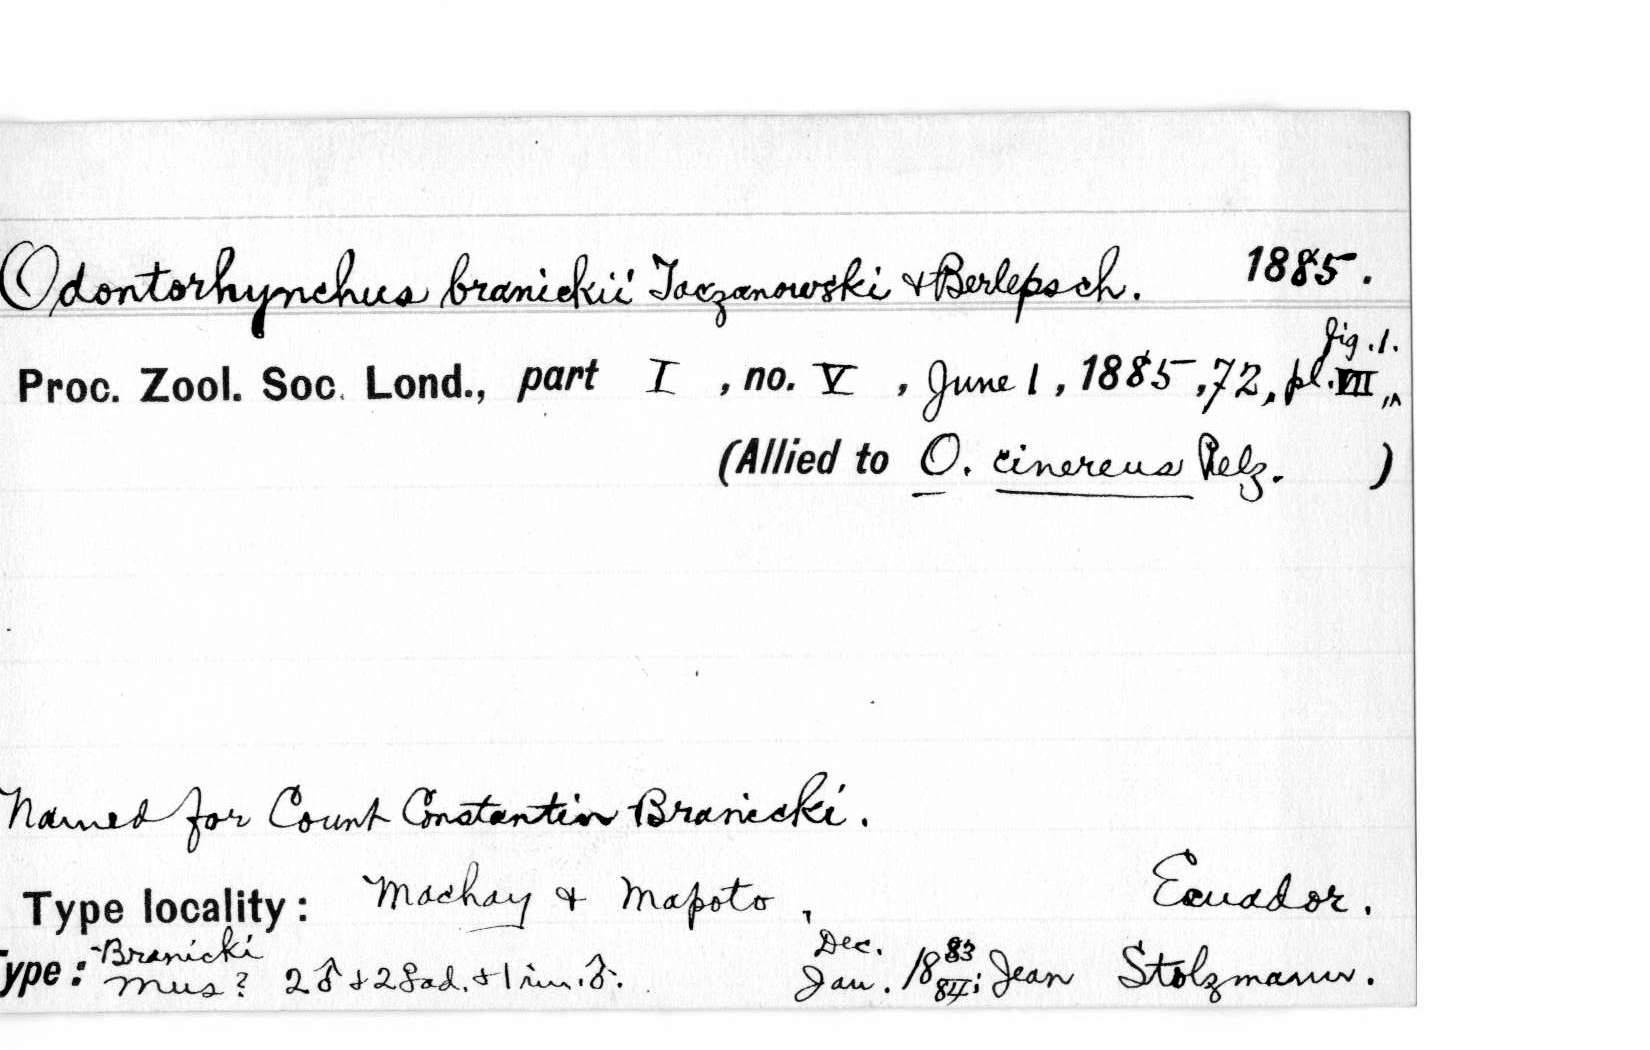 Odontorhynchus branickii Taczanowski & Berlepsch. 1885.
fig. 1.
Proc. Zool. Soc. Lond., part I, no. V, June 1, 1885, 72, pl. VII,
(Allied to O. cinereus Pelz. )
Named for Count Constantin Branicki.
Type locality: Machay & Mapoto, Ecuador.
Branicki Dec. 83
ype: Mus? 2♂ + 2♀ad. + 1 im. ♂. Jan. 1884; Jean Stolzmann.